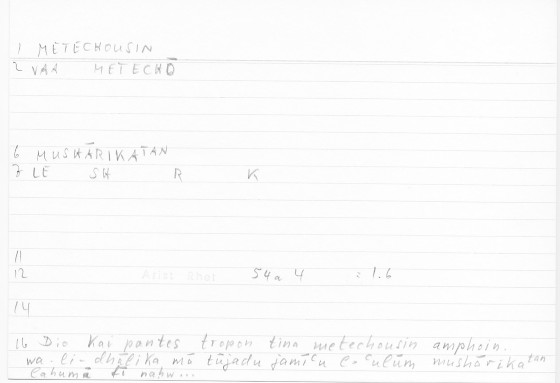 1 METECHOUSIN
2 VAA METECHŌ
6 MUSHĀRIKATAN
7 LE SH R K
11
12 Arist-Rhet 54a 4 = 1.6
14
16 Dio kai pantes tropon tina metechousin amphoin.
wa-li-dhālika mā tūjadu jamīʿu l-ʿulūm mushārikatan
lahumā fī nahw...